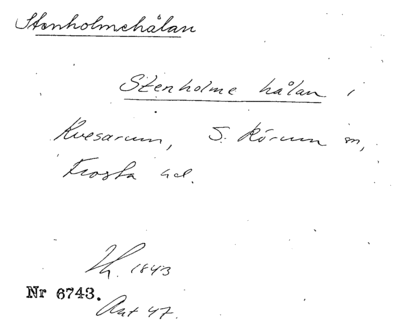 Stenholmehålan
Stenholme hålan i
Kvesarum, S. Rörum sn,
Frosta hd.
Th. 1843
Nr 6743.
Ant 47.